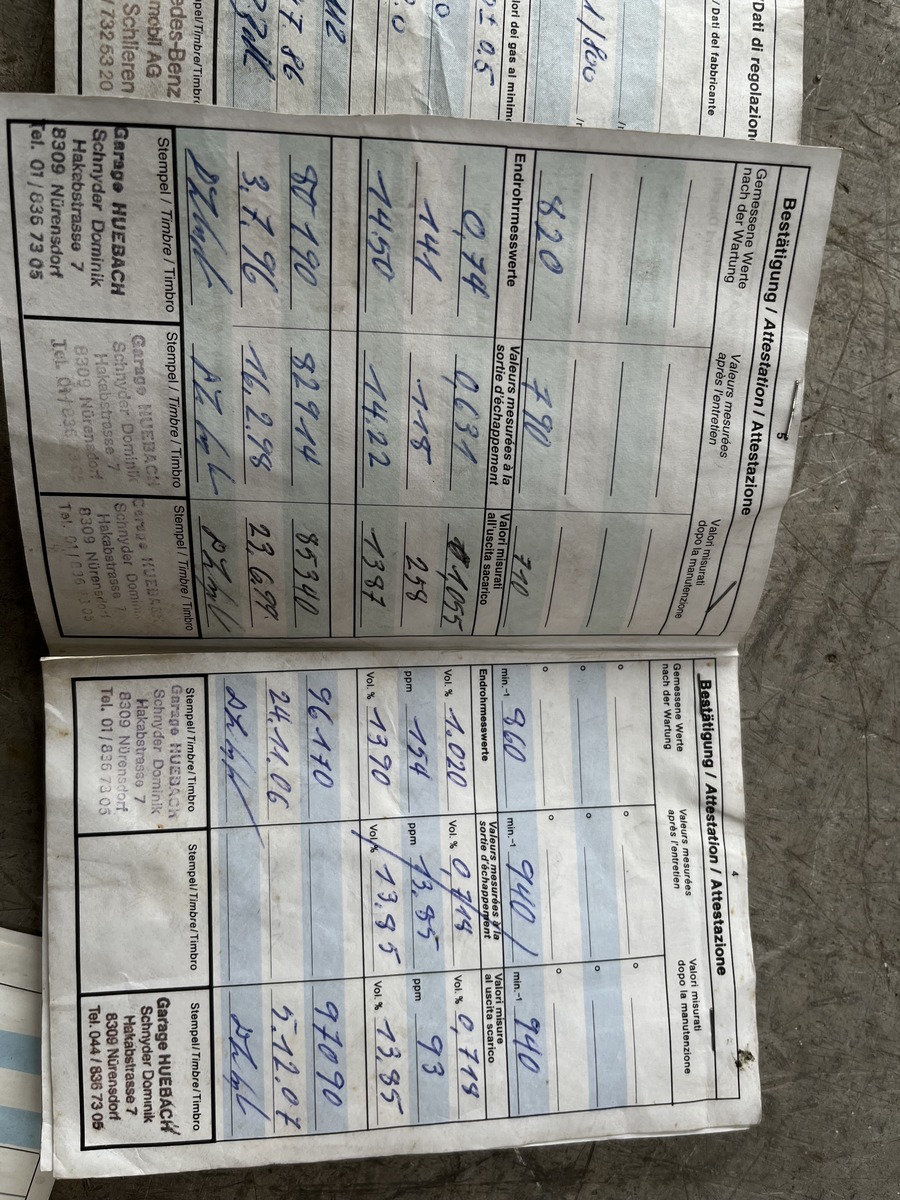 Dati di regolazion
/ Dati del fabbricante
1/800
lori dei gas al minimo
± 0.5
edes-Benz
mobil AG
Schlieren
/ 732 53 20
5
Bestätigung / Attestation / Attestazione
Gemessene Werte
nach der Wartung
Valeurs mesurées
après l'entretien
Valori misurati
dopo la manutenzione
820 790 710
Endrohrmesswerte
Valeurs mesurées à la
sortie d'échappement
Valori misurati
all'uscita sacarico
0,74 0,631 1,055
141 118 258
14.50 14,22 13.87
80190 82914 85340
3.7.96 16.2.98 23.6.99.
Stempel / Timbre / Timbro
Stempel / Timbre / Timbro
Stempel / Timbre / Timbro
Garage HUEBACH
Schnyder Dominik
Hakabstrasse 7
8309 Nürensdorf
Tel. 01 / 836 73 05
Garage HUEBACH
Schnyder Dominik
Hakabstrasse 7
8309 Nürensdorf
Tel. 01/836
Garage HUEBACH
Schnyder Dominik
Hakabstrasse 7
8309 Nürensdorf
Tel. 01/836 73 05
4
Bestätigung / Attestation / Attestazione
Gemessene Werte
nach der Wartung
Valeurs mesurées
après l'entretien
Valori misurati
dopo la manutenzione
° ° °
° ° °
° ° °
min.-1 960 min.-1 940 / min.-1 940
Endrohrmesswerte
Valeurs mesurées à la
sortie d'échappement
Valori misure
al uscita scarico
Vol. % 1.020 Vol. % 0,718 Vol. % 0,718
ppm 154 ppm 13.85 ppm 93
Vol. % 13.90 Vol. % 13.85 Vol. % 13.85
96170 97090
24.11.06 5.12.07
Stempel/Timbre/Timbro
Stempel/Timbre/Timbro
Stempel/Timbre/Timbro
Garage HUEBACH
Schnyder Dominik
Hakabstrasse 7
8309 Nürensdorf
Tel. 01 / 836 73 05
Garage HUEBACH
Schnyder Dominik
Hakabstrasse 7
8309 Nürensdorf
Tel. 044 / 836 73 05